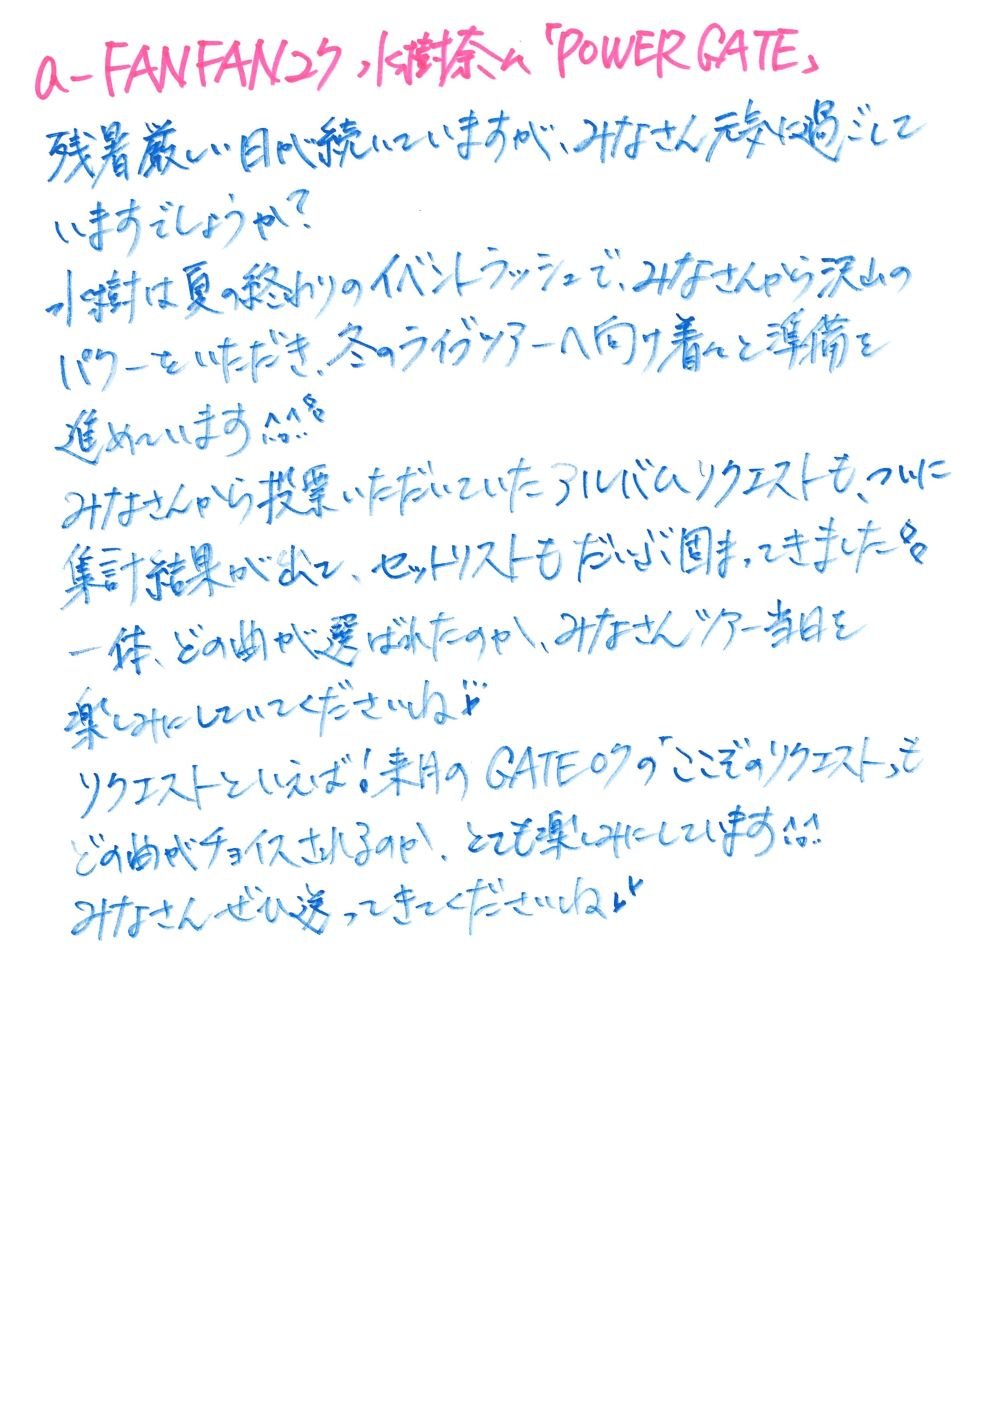 a-FANFANコク 水樹奈々「POWER GATE」
残暑厳しい日が続いていますが、みなさん元気に過ごして
いますでしょうか?
水樹は夏の終わりのイベントラッシュで、みなさんから沢山の
パワーをいただき、冬のライブツアーへ向け着々と準備を
進めています^^
みなさんから投票いただいていたアルバムリクエストも、ついに
集計結果が出て、セットリストもだいぶ固まってきました
一体、どの曲が選ばれたのか、みなさんツアー当日を
楽しみにしていてくださいね
リクエストといえば!来月のGATEコクの「ここぞのリクエスト」も
どの曲がチョイスされるのか、とても楽しみにしています^^
みなさんぜひ送ってきてくださいね♪